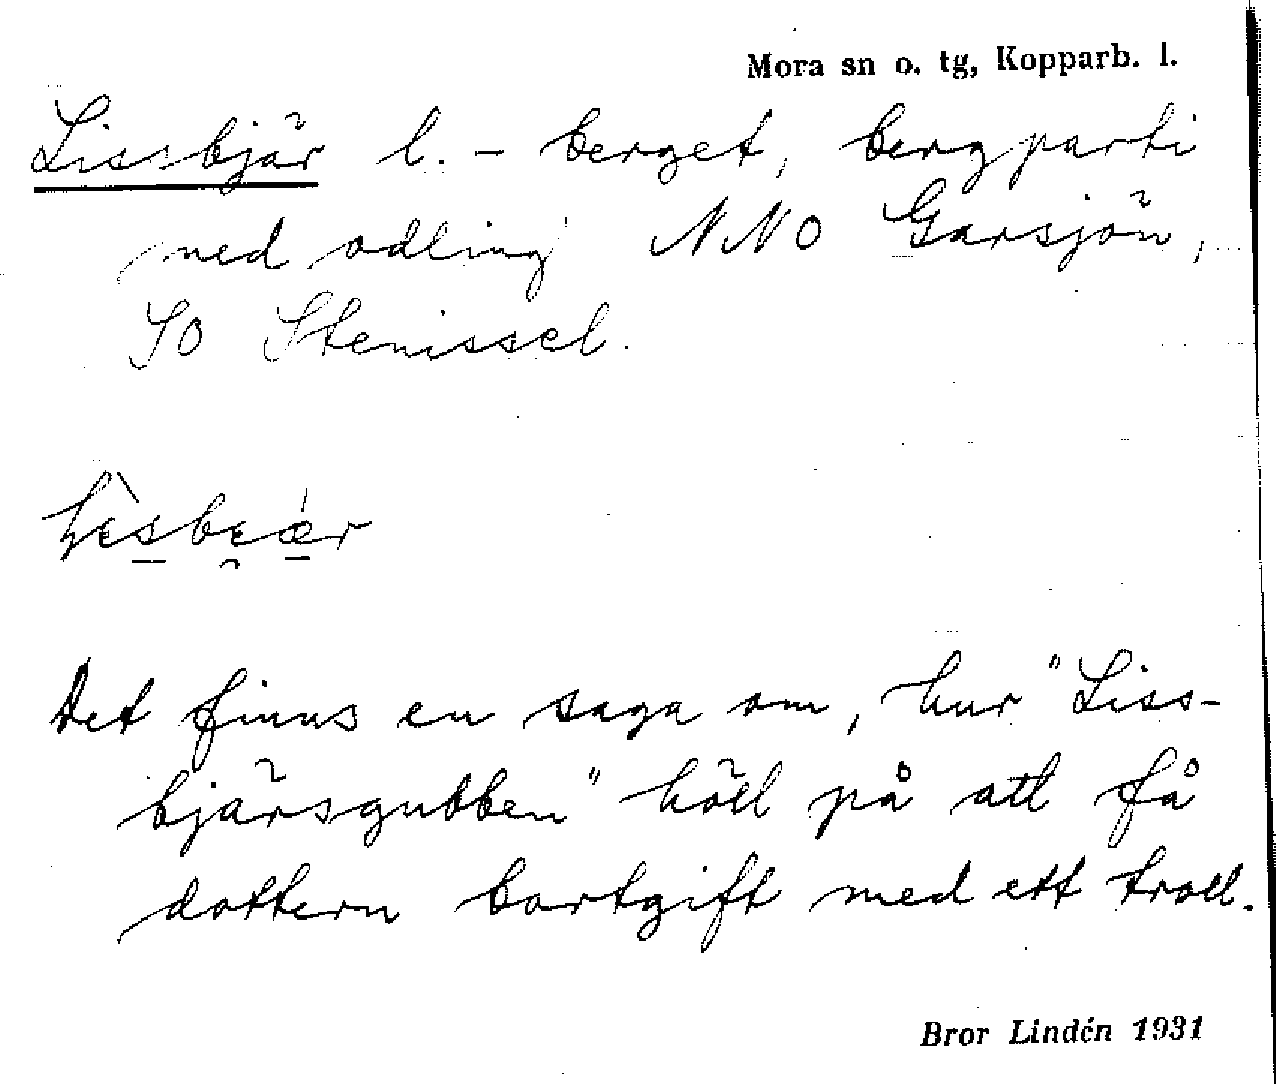 Mora sn o. tg, Kopparb. l.
Lissbjär l. - berget, bergparti
med odling NNO Garsjön,
SO Stenissel.
Det finns en saga om, hur "Liss-
bjärsgubben" höll på att få
dottern bortgift med ett troll.
Bror Lindén 1931